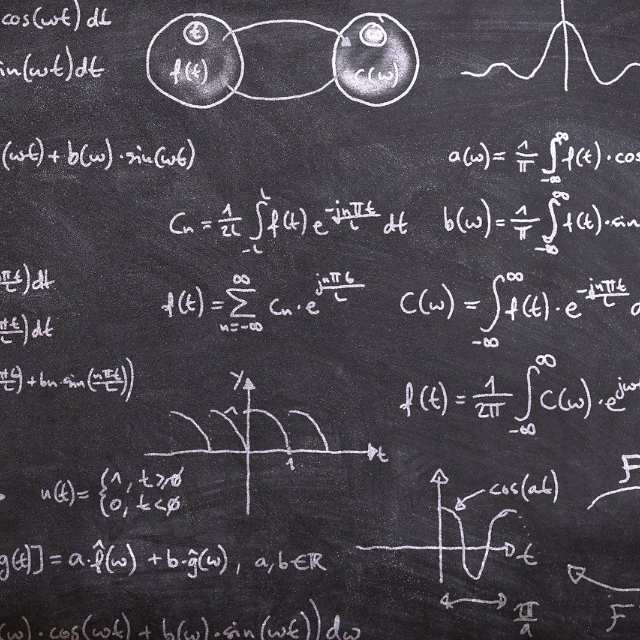 cos(ωt) dt
t
f(t)
ω
C(ω)
in(ωt)dt
(ωt) + b(ω)·sin(ωt)
a(ω) = 1/π ∫_{-∞}^{∞} f(t)·cos
C_n = 1/2L ∫_{-L}^{L} f(t) e^{-jnπt/L} dt
b(ω) = 1/π ∫_{-∞}^{∞} f(t)·sin
nπt/L)dt
f(t) = Σ_{n=-∞}^{∞} C_n·e^{jnπt/L}
C(ω) = ∫_{-∞}^{∞} f(t)·e^{-jnπt/L}
πt/L)dt
πt/L) + bn·sin(nπt/L))
f(t) = 1/2π ∫_{-∞}^{∞} C(ω)·e^{jω
y
t
1
u(t) = {1, t>0
{0, t<0
cos(at)
t
F
g(t)] = a·f̂(ω) + b·ĝ(ω), a,b∈ℝ
π/a
F
(ω)·cos(ωt) + b(ω)·sin(ωt)) dω